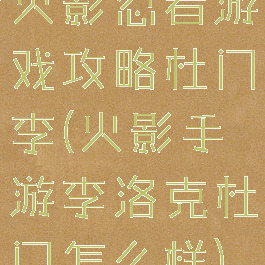 火影忍者游
戏攻略杜门
李(火影手
游李洛克杜
门怎么样)